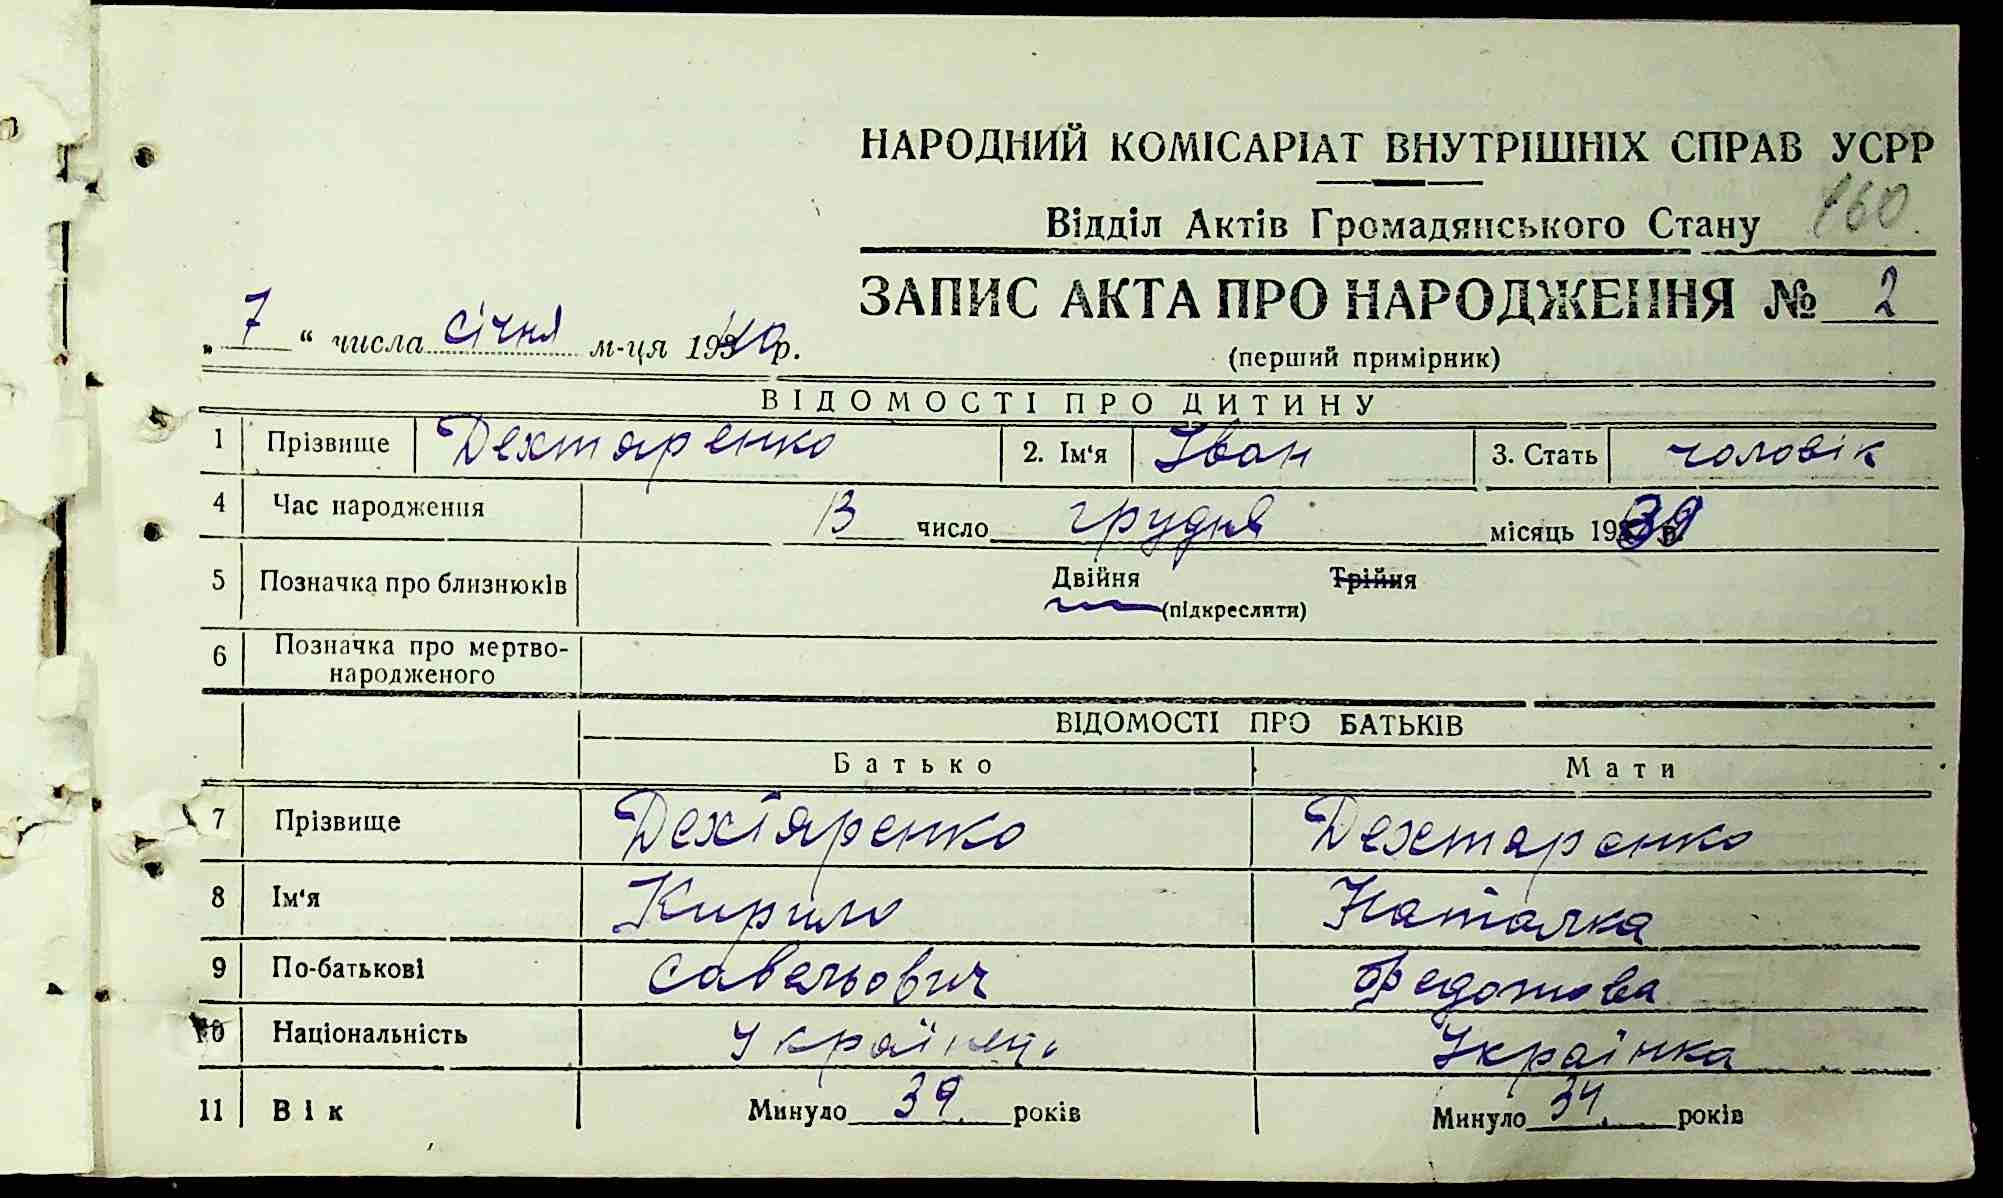 НАРОДНИЙ КОМІСАРІАТ ВНУТРІШНІХ СПРАВ УСРР
Відділ Актів Громадянського Стану 160
ЗАПИС АКТА ПРО НАРОДЖЕННЯ № 2
„ 7 “ числа січня м-ця 1940 р.
(перший примірник)
ВІДОМОСТІ ПРО ДИТИНУ
1 Прізвище Дехтяренко 2. Ім‘я Іван 3. Стать чоловік
4 Час народження 13 число грудня місяць 1939 р.
5 Позначка про близнюків Двійня Трійня
(підкреслити)
6 Позначка про мертво-
народженого
ВІДОМОСТІ ПРО БАТЬКІВ
Батько Мати
7 Прізвище Дехтяренко Дехтяренко
8 Ім‘я Кирило Наталка
9 По-батькові Савельович Федотова
10 Національність Українець Українка
11 Вік Минуло 39 років Минуло 34 років